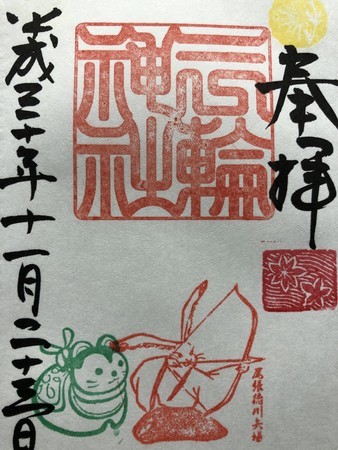 奉拝
三輪
神社
平成三十年十一月二十三日
尾張徳川矢場